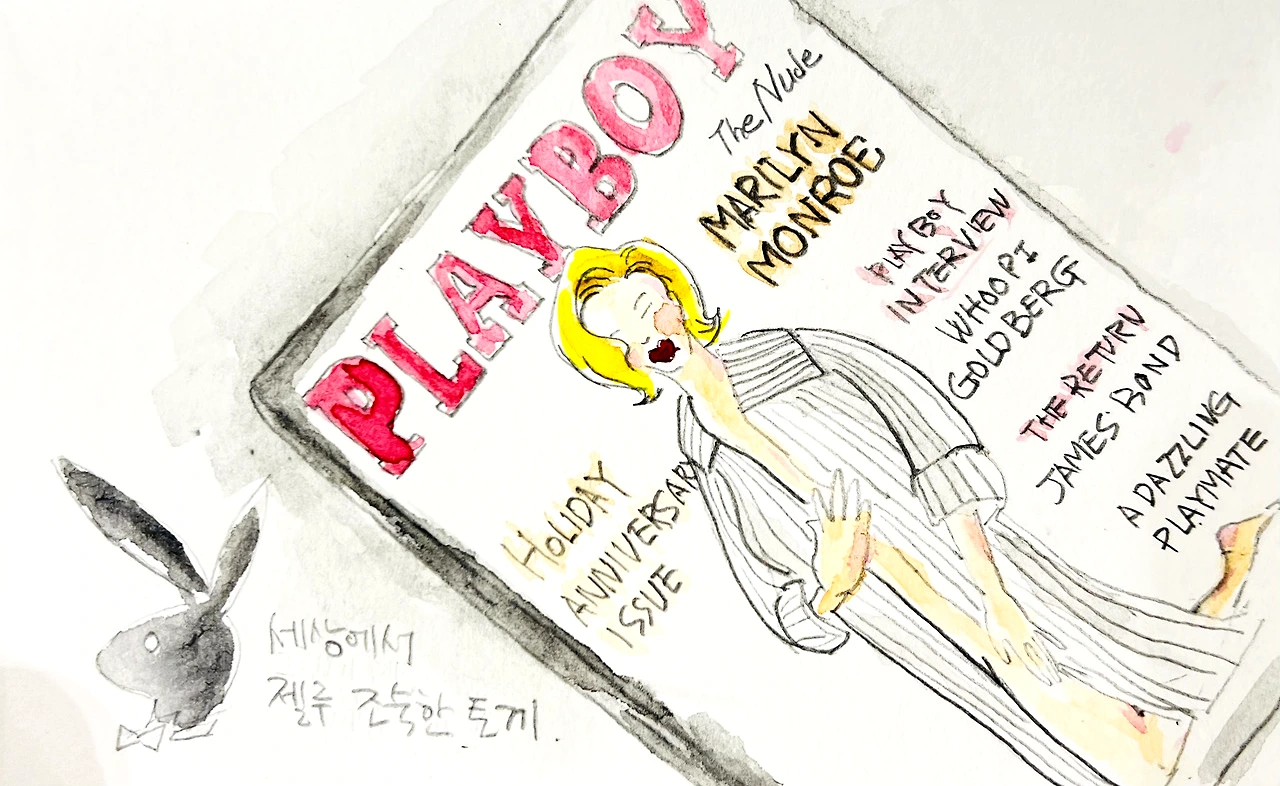 PLAYBOY
The Nude
MARILYN
MONROE
PLAYBOY
INTERVIEW
WHOOPI
GOLDBERG
THE RETURN
JAMES BOND
A DAZZLING
PLAYMATE
HOLIDAY
ANNIVERSARY
ISSUE
세상에서
젤루 조숙한 토끼.